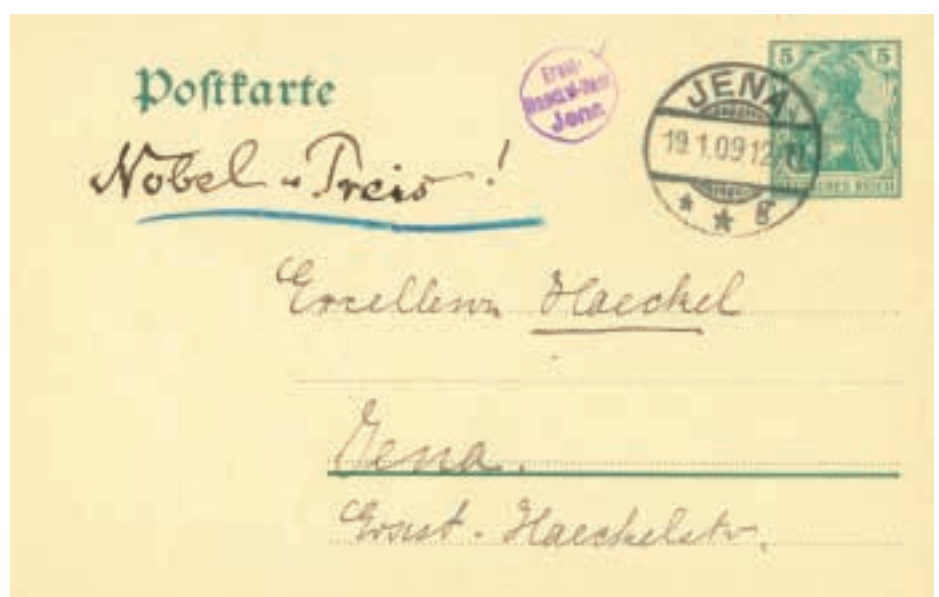 Postkarte
Ernst-
Haeckel-Haus
Jena
JENA
19.1.09 12
* * g
5 5
DEUTSCHES REICH
Nobel-Preis!
Excellenz Haeckel
Jena.
Ernst-Haeckelstr.